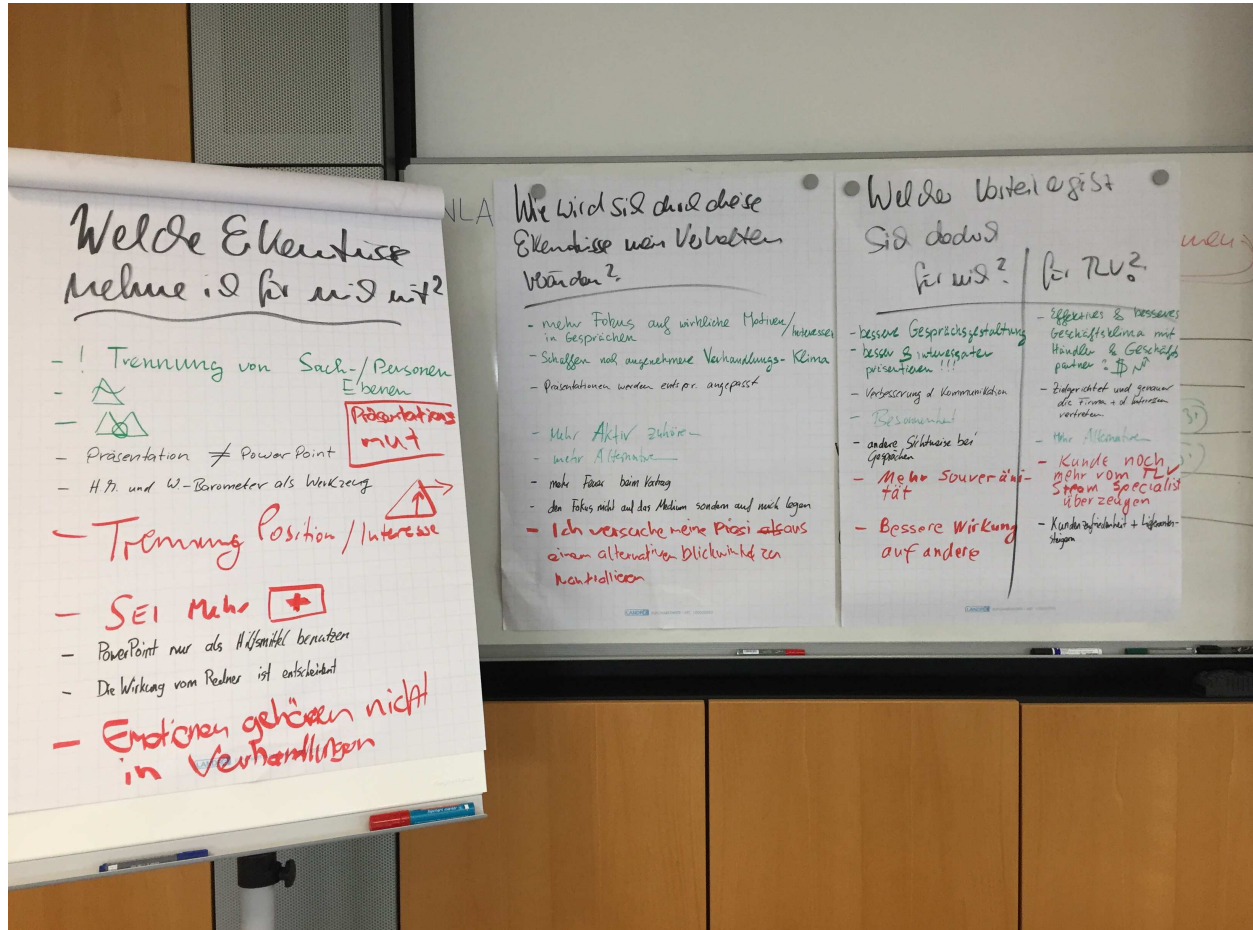 Welche Erkentnisse
nehme ich für mich mit?
- ! Trennung von Sach-/Personen
Ebenen
-
-
Präsentations
mut
- Präsentation ≠ PowerPoint
- H.M. und W-Barometer als Werkzeug
- Trennung Position/Interesse
- SEI Mehr +
- PowerPoint nur als Hilfsmittel benutzen
- Die Wirkung vom Redner ist entscheident
- Emotionen gehören nicht
in Verhandlungen
NLA
Wie wird sich durch diese
Erkenntnisse mein Verhalten
verändern?
- mehr Fokus auf wirkliche Motiven/Interessen
in Gesprächen
- Schaffen noch angenehmere Verhandlungs-Klima
- Präsentationen werden entspr. angepasst
- Mehr Aktiv zuhören
- mehr Alternativen
- mehr Feuer beim Vortrag
- den Fokus nicht auf das Medium sondern auf mich legen
- Ich versuche meine Präsi als aus
einem alternativen Blickwinkel zu
kontrollieren
Welcher Vorteil ergibt
sich dadurch
für mich?
- bessere Gesprächsgestaltung
- besser & interessanter
präsentieren!!!
- Verbesserung d Kommunikation
- Besonnenheit
- andere Sichtweise bei
Gesprächen
- Mehr Souveräni-
tät
- Bessere Wirkung
auf andere
für TLV?
- Effektives & besseres
Geschäftsklima mit
Händler & Geschäfts
partner = $
- Zielgerichtet und genauer
die Firma + d Interessen
vertreten
- Mehr Alternativen
- Kunde noch
mehr vom TLV
Strom Specialist
überzeugen
- Kundenzufriedenheit + Lieferanten-
steigern
LANDSIEDEL